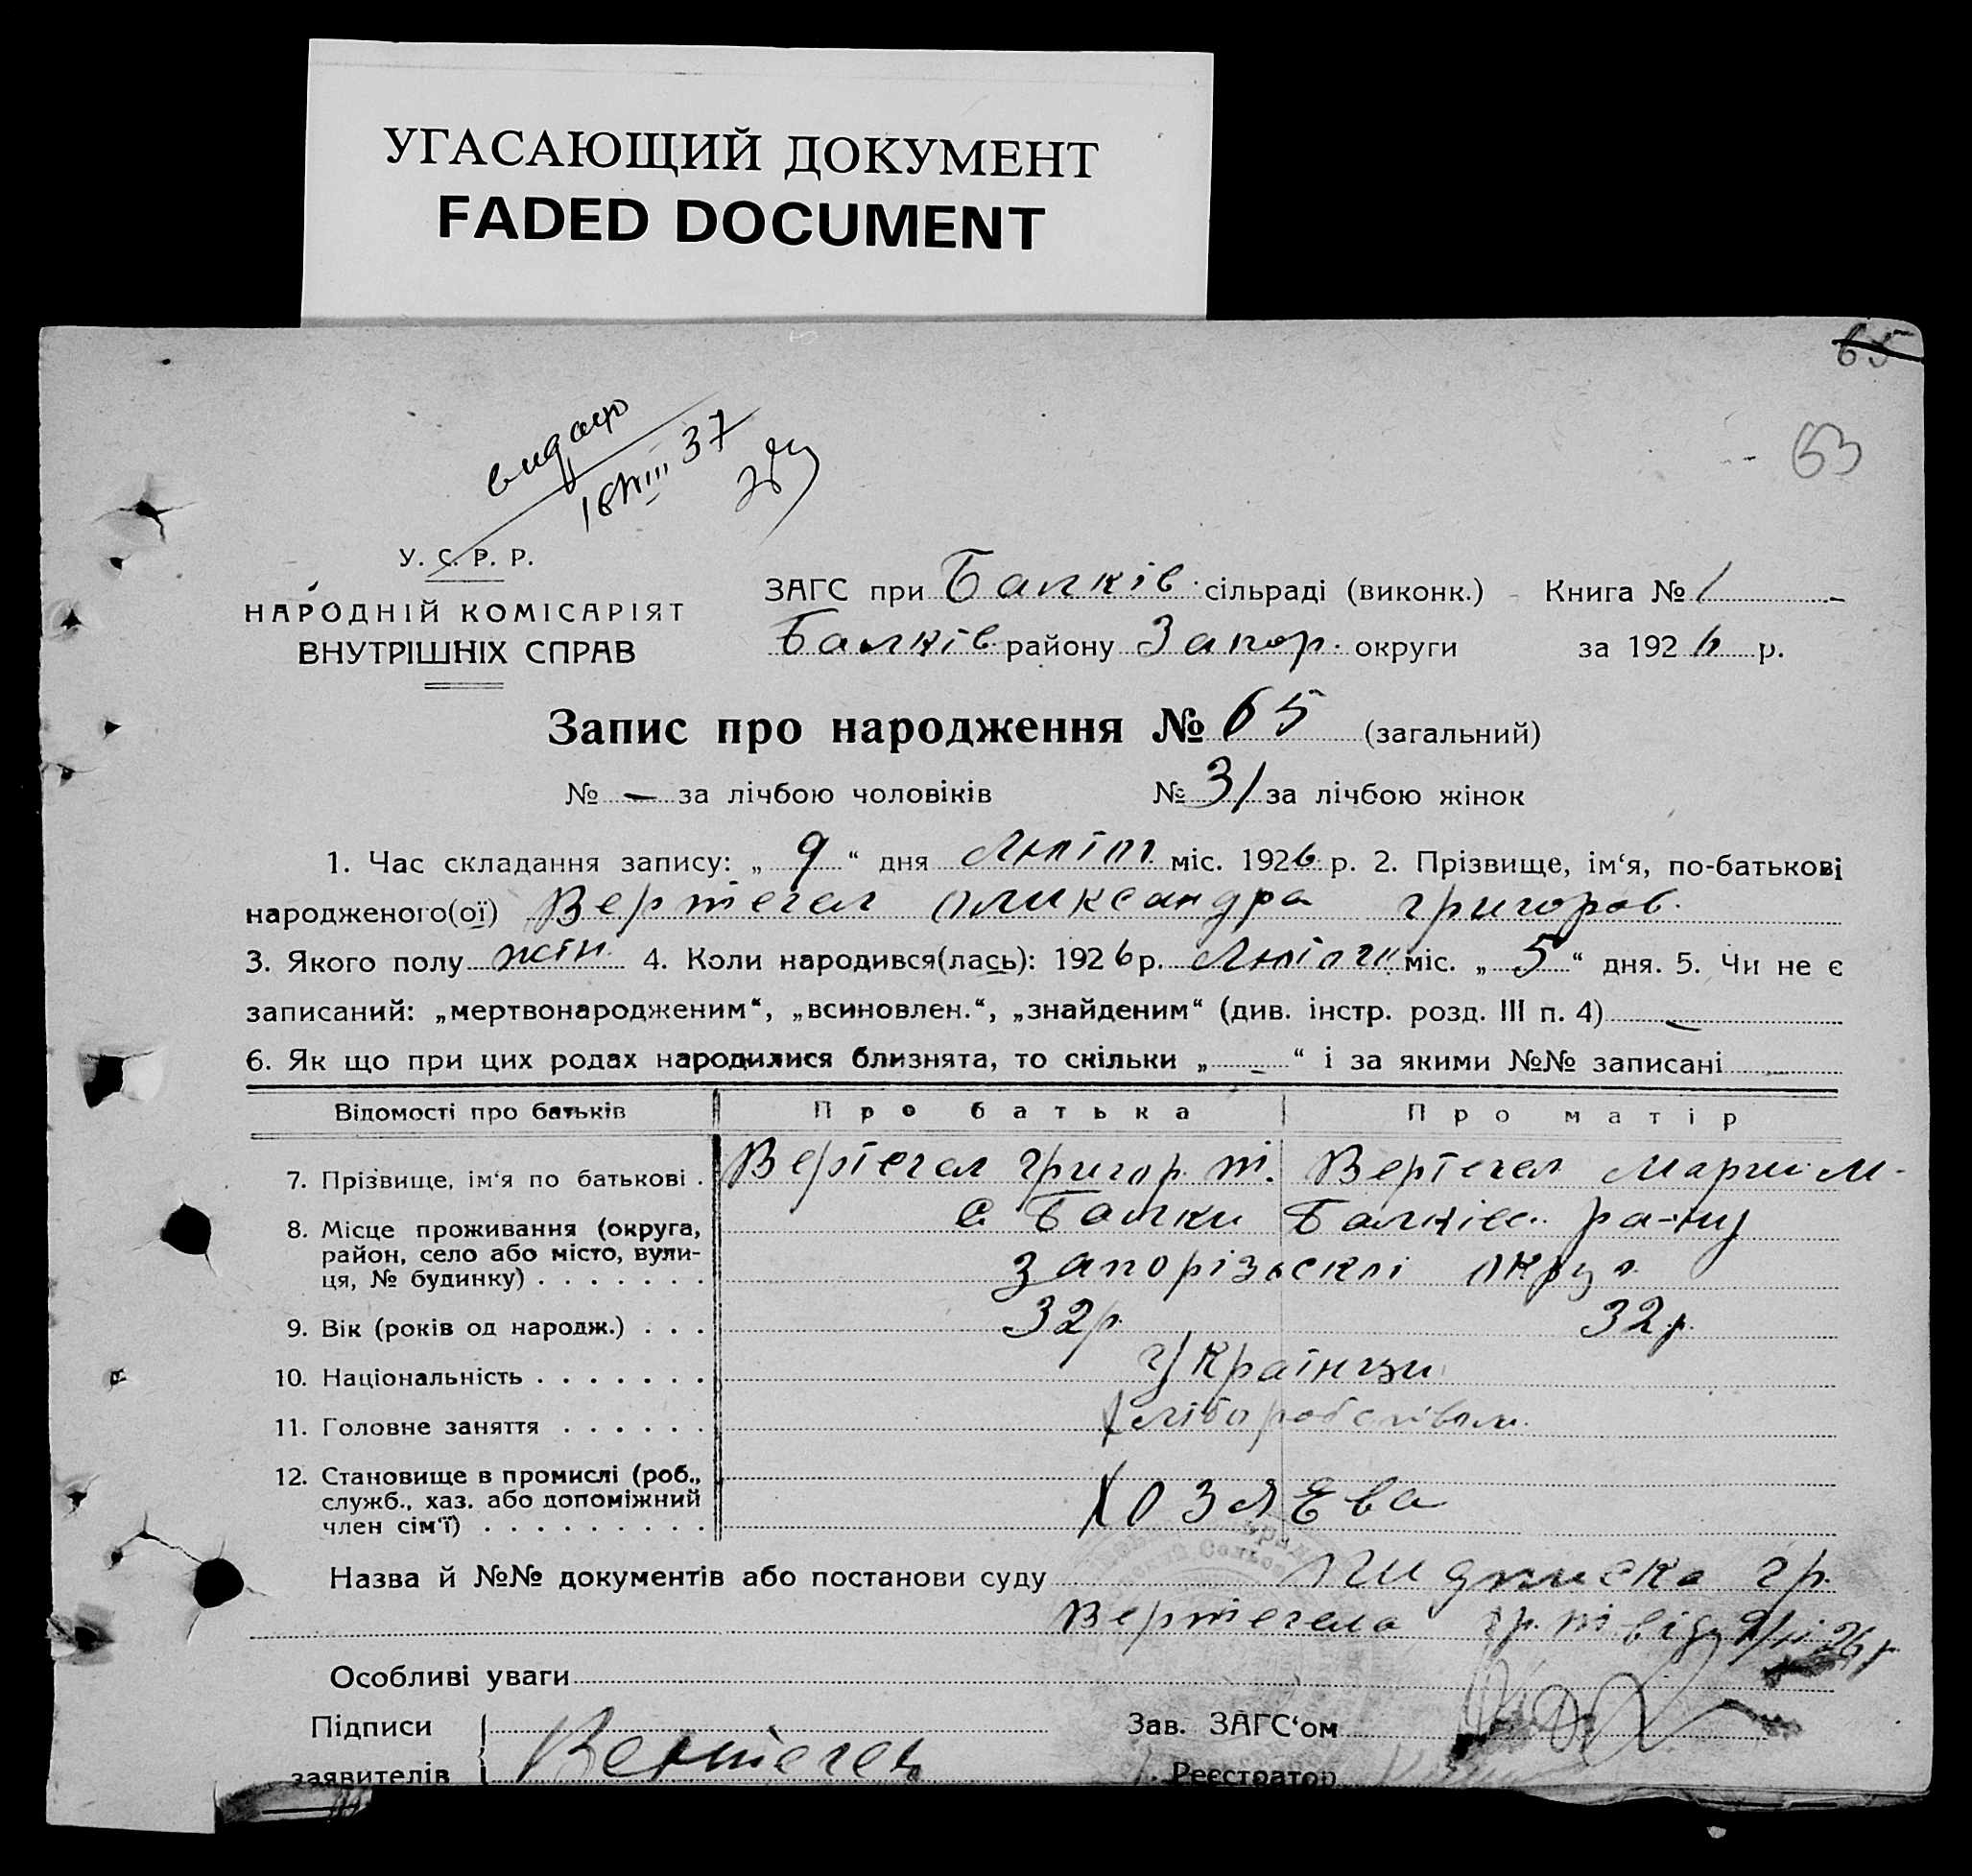 УГАСАЮЩИЙ ДОКУМЕНТ
FADED DOCUMENT
65
63
видано
18/VIII 37
У. С. Р. Р.
НАРОДНІЙ КОМІСАРІЯТ
ВНУТРІШНІХ СПРАВ
ЗАГС при Балків. сільраді (виконк.) Книга № 1
Балків. району Запор. округи за 1926 р.
Запис про народження № 65 (загальний)
№ — за лічбою чоловіків № 31 за лічбою жінок
1. Час складання запису: „ 9 “ дня Лютіт міс. 1926 р. 2. Прізвище, ім‘я, по-батькові
народженого(ої) Вертегел Оликсандра Григоров.
3. Якого полу жін. 4. Коли народився(лась): 1926 р. Лютіги міс. „ 5 “ дня. 5. Чи не є
записаний: „мертвонародженим“, „всиновлен.“, „знайденим“ (див. інстр. розд. III п. 4) —
6. Як що при цих родах народилися близнята, то скільки „ — “ і за якими №№ записані —
Відомості про батьків Про батька Про матір
7. Прізвище, ім‘я по батькові . Вертегел Григор. Т. Вертегел Марии М.
8. Місце проживання (округа, с Балки Балківс. ра-ну
район, село або місто, вули-
ця, № будинку) . . . . . . . Запорізьскоі округ
9. Вік (років од народж.) . . . 32 р. 32 р.
10. Національність . . . . . . . Українци
11. Головне заняття . . . . . . Хліборобством.
12. Становище в промислі (роб.,
служб., хаз. або допоміжний Хозяєва
член сім‘ї) . . . . . . . . .
Назва й №№ документів або постанови суду Пидписка гр.
Вертегела Гр. Т від 9/II 26 р
Особливі уваги
Підписи Зав. ЗАГС‘ом
заявителів Вертегел Реєстратор